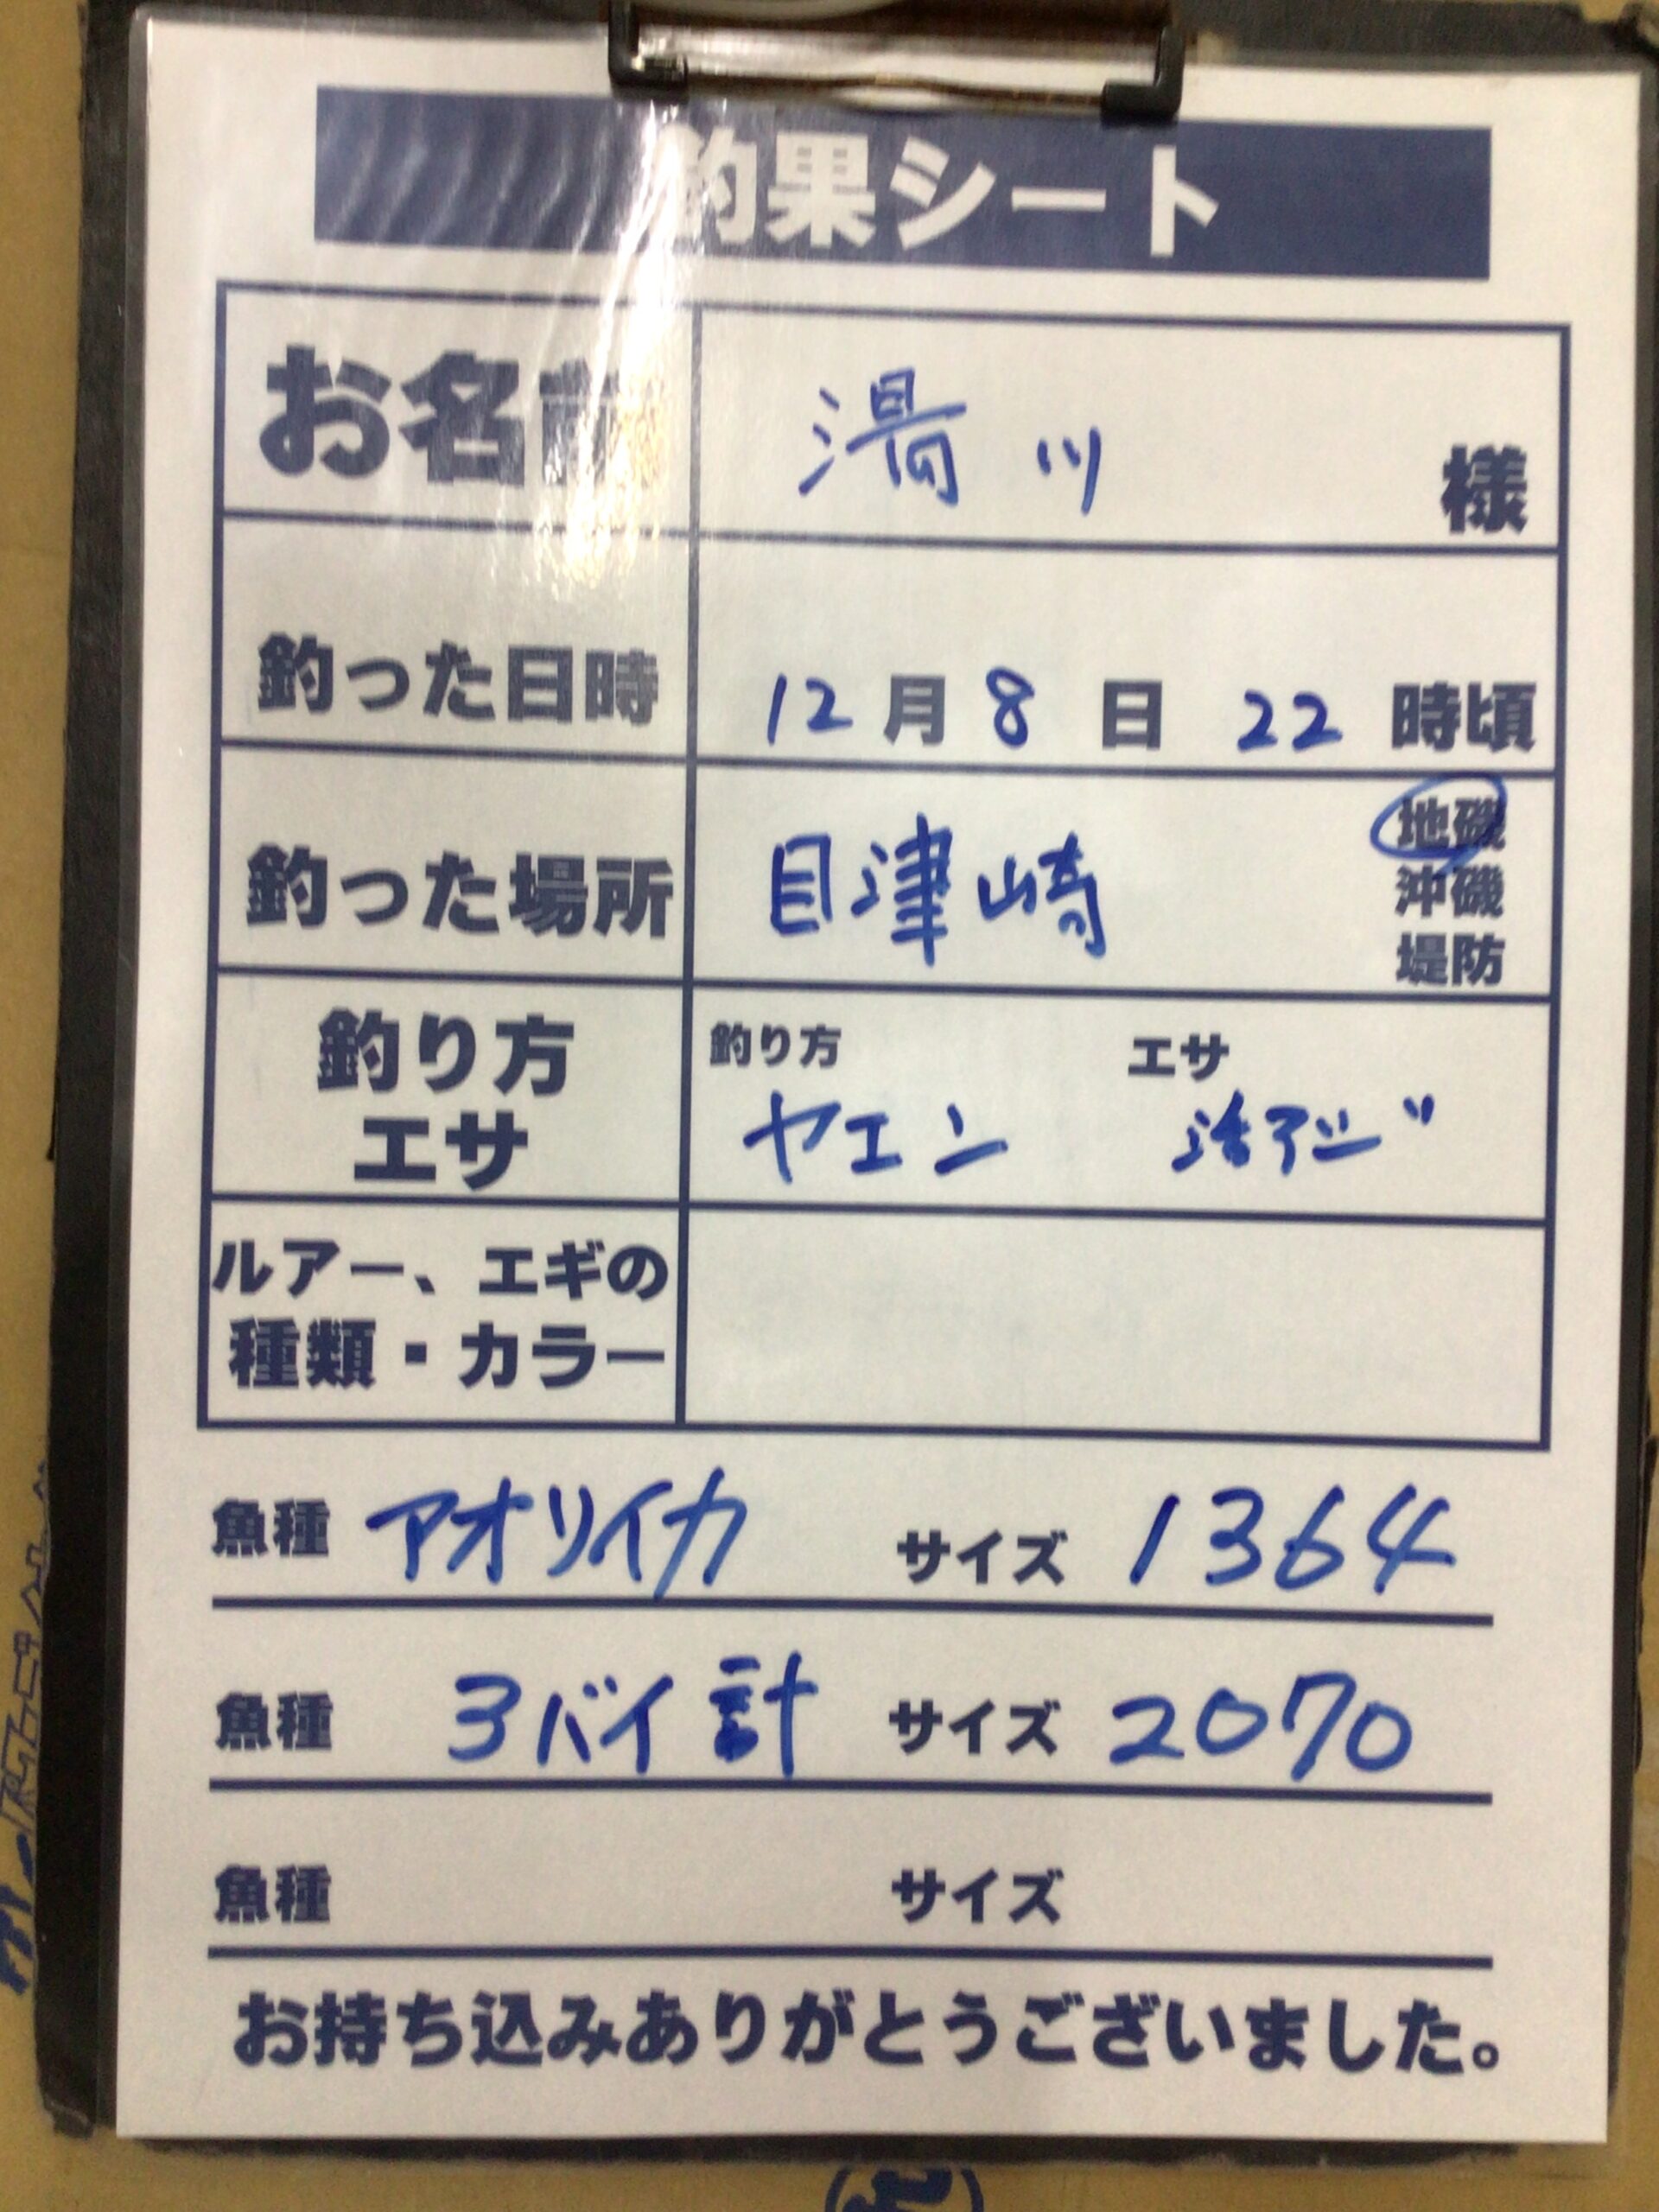 釣果シート
お名前 湯川 様
釣った日時 12月8日22時頃
釣った場所 目津崎 地磯
沖磯
堤防
釣り方
エサ
釣り方 エサ
ヤエン 活アジ
ルアー、エギの
種類・カラー
魚種 アオリイカ サイズ 1364
魚種 3バイ計 サイズ 2070
魚種 サイズ
お持ち込みありがとうございました。